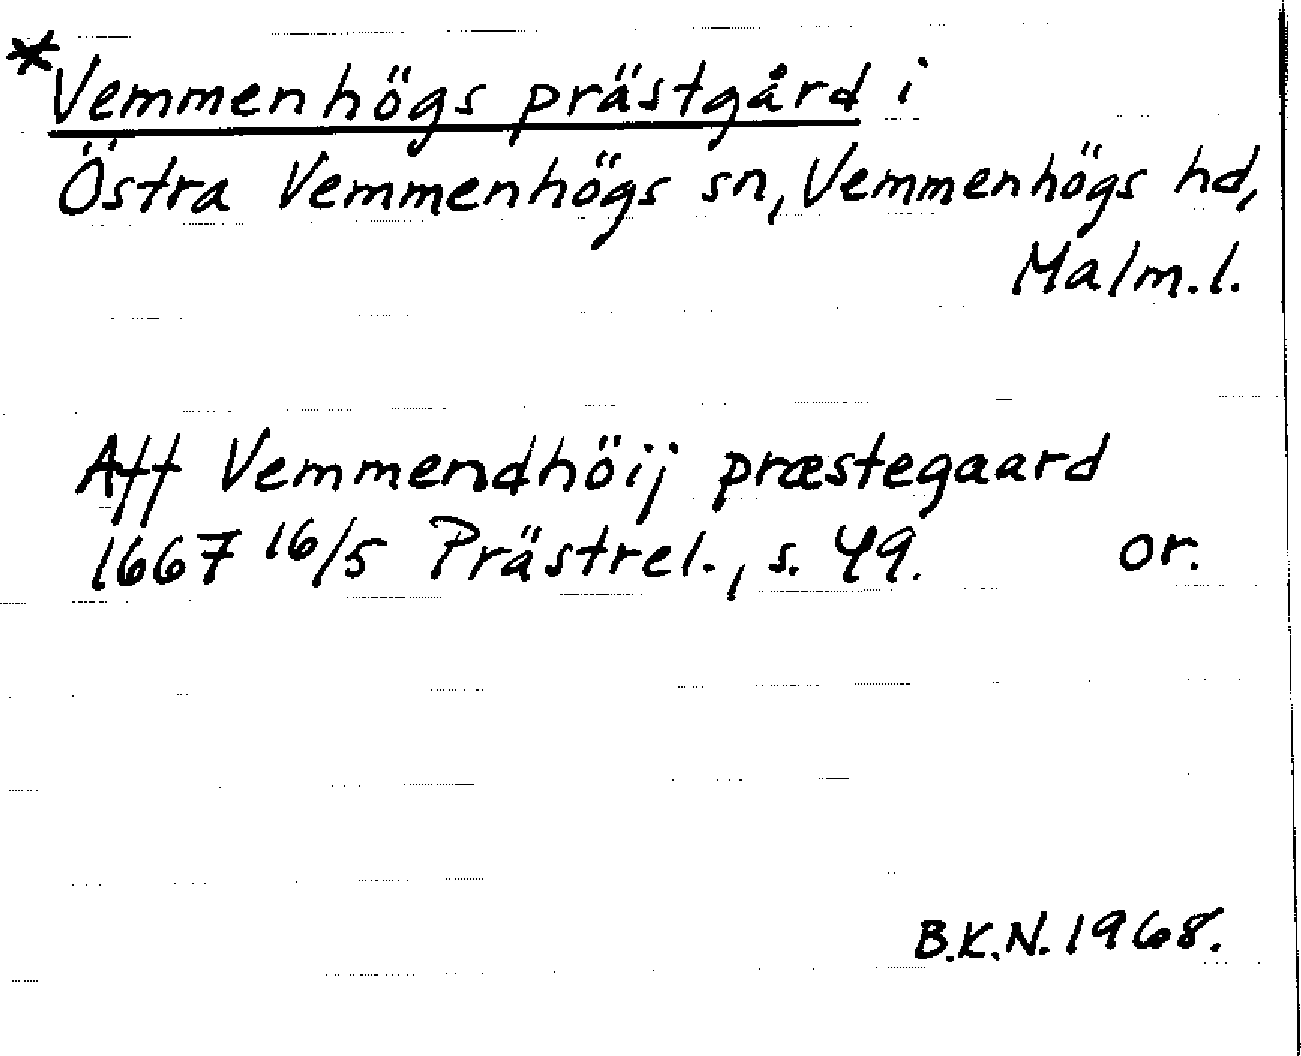 *Vemmenhögs prästgård i
Östra Vemmenhögs sn, Vemmenhögs hd,
Malm.l.
Aff Vemmendhöij præstegaard
1667 16/5 Prästrel., s. 49. or.
B.K.N. 1968.